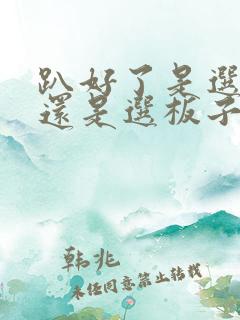 趴好了是選
還是選板子
韩兆
未经同意禁止转载